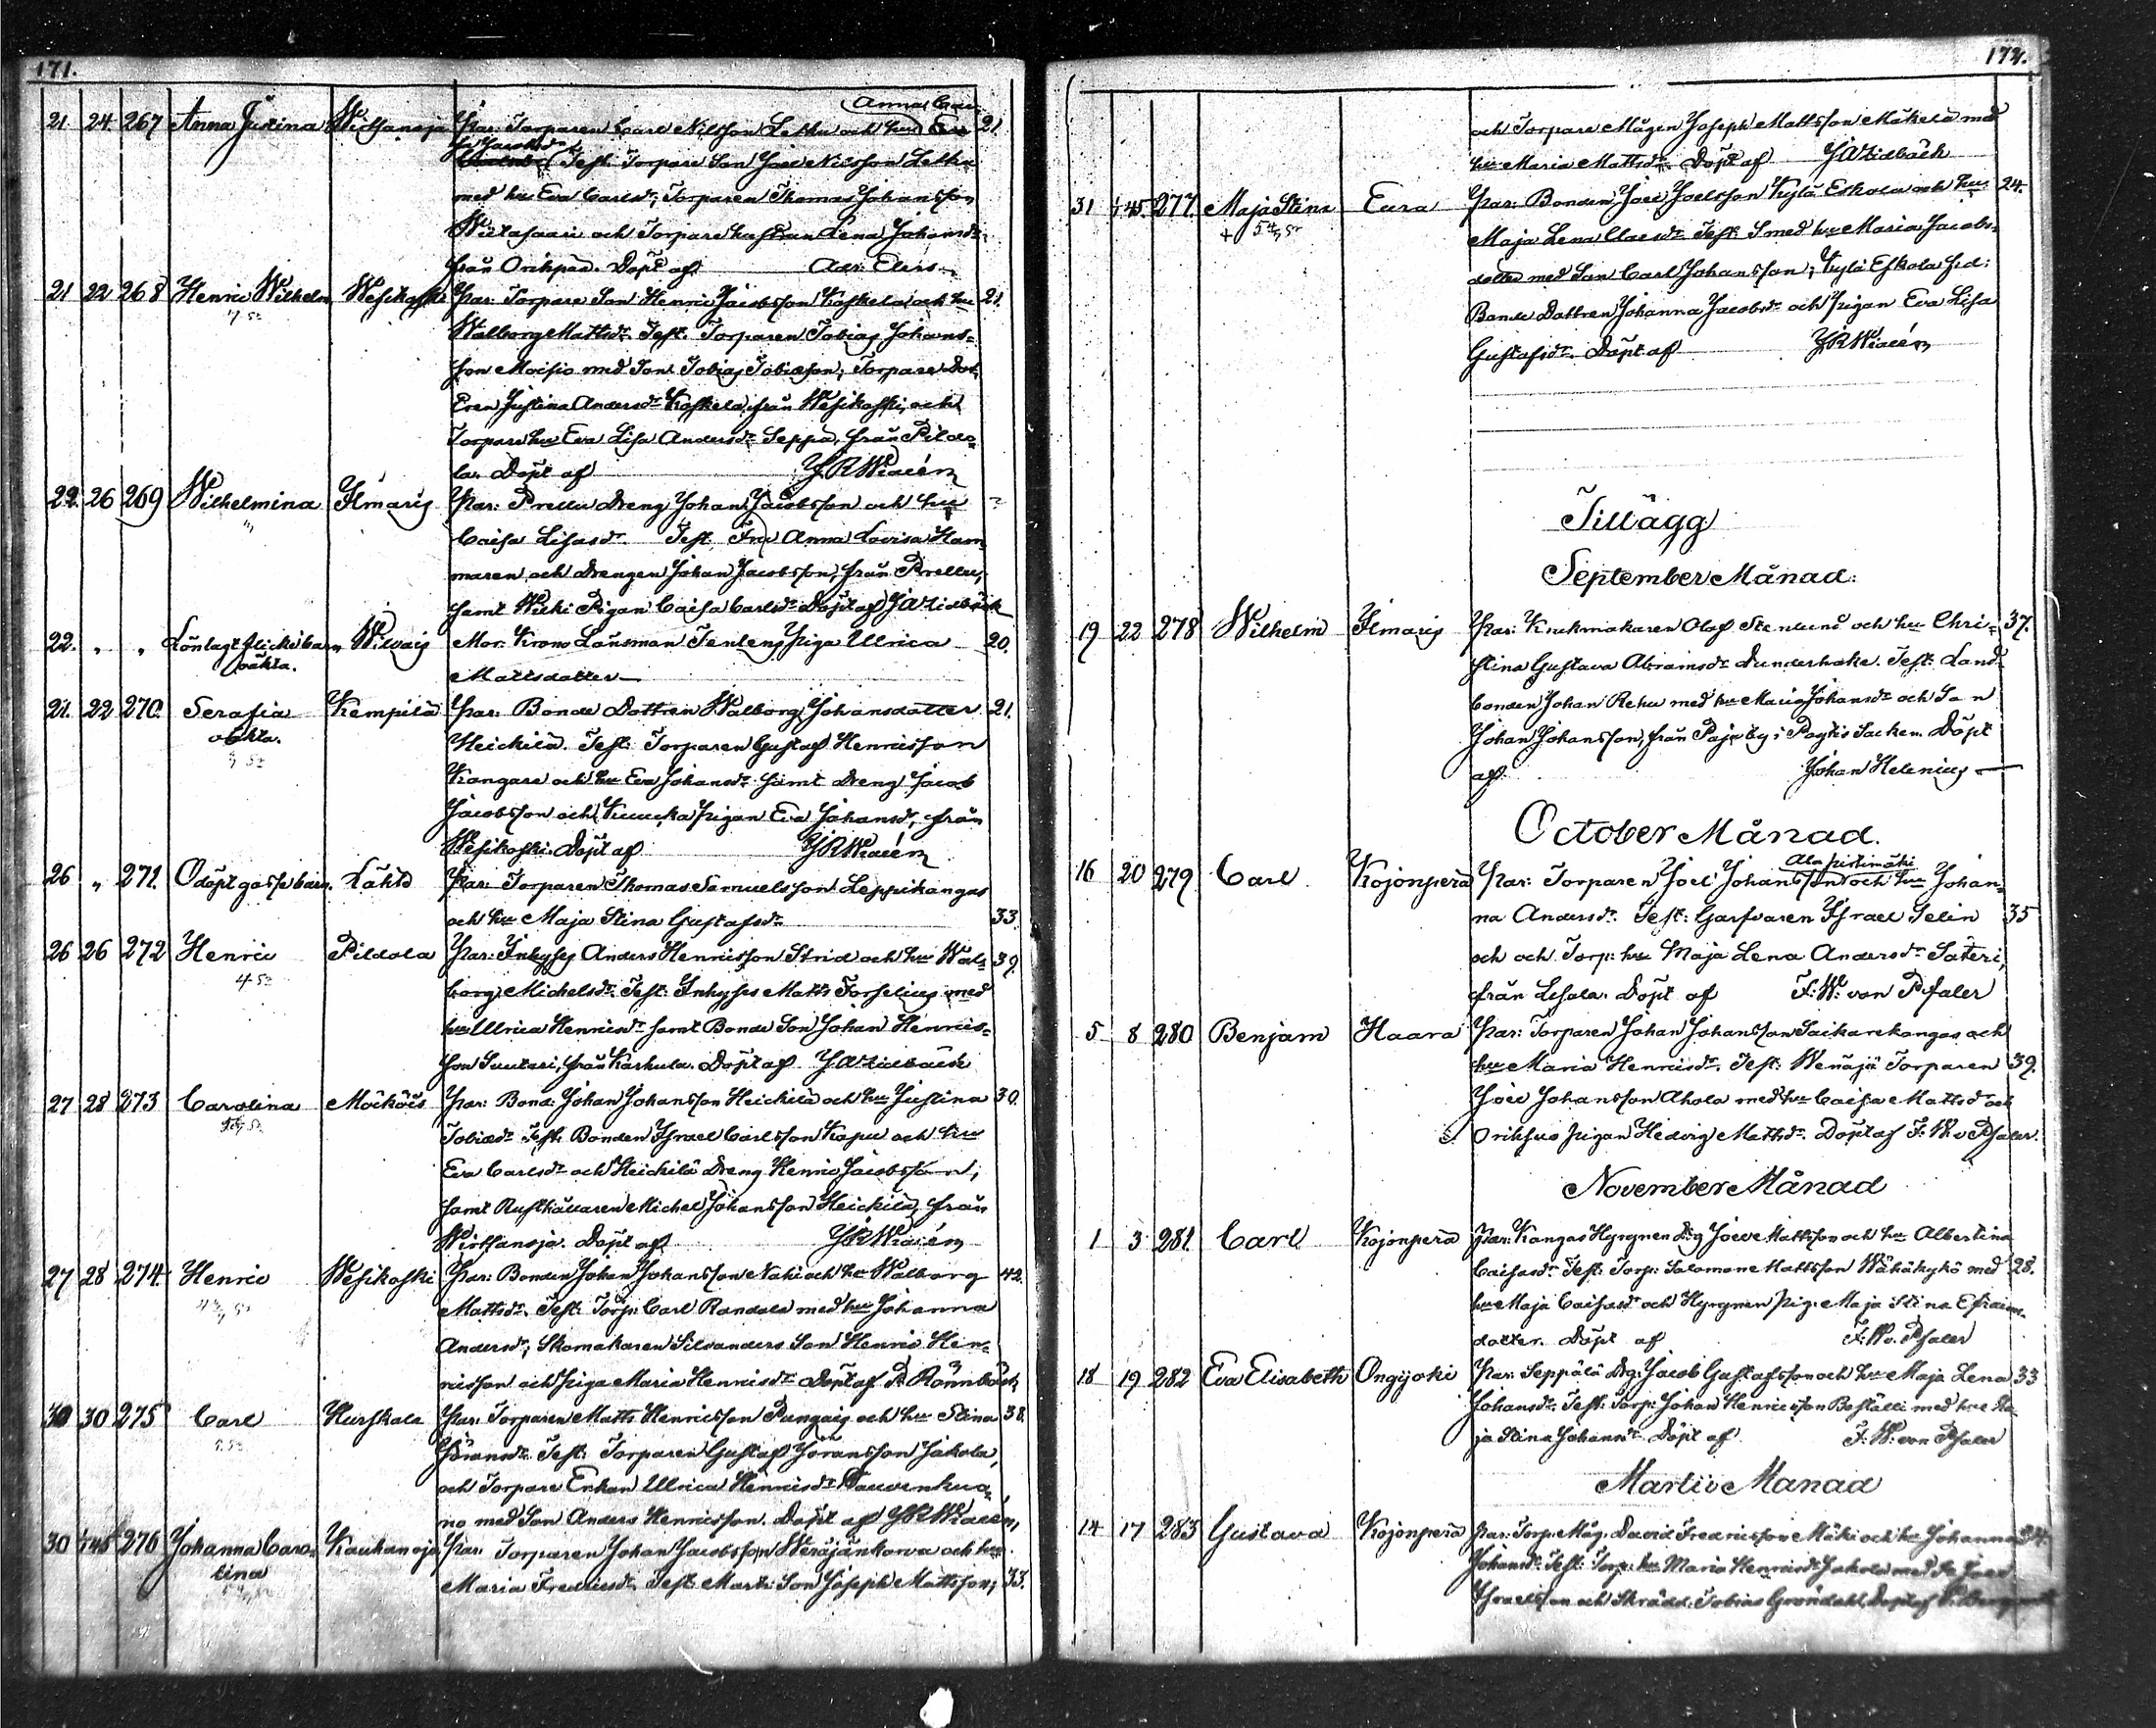 171.
Anna Car-
21 24 267 Anna Justina Wirtsanoja Par: Torparen Carl Nilsson Lethu och hu 21.
Test: Torpare Son Joel Nilsson Lethu
med hu Eva Carlsdr, Torparen Thomas Johansson
och Torpare hustrun Lena Johansdr
från Orihpää. Döpt af
21 22 268 Henric Wilhelm Wesikoski Par: Torpare Son Henric Jacobsson Koskela och hu 21.
Walborg Mattsdr. Test: Torparen Tobias Johans-
son Moisio med Son Tobias Tobiasson; Torpare Dot-
tren Justina Andersdr Koskela, från Wesikoski, och
Torpare hu Eva Lisa Andersdr Seppä, från Pildo-
la. Döpt af J R Widén
22. 26 269 Wilhelmina Ilmaris Par: Prellu Dreng Johan Jacobsson och hu
Caisa Lisasdr. Test: Fru Anna Lovisa Ham-
maren och Drengen Johan Jacobsson, från Prellu,
samt Pigan Caisa Carlsdr. Döpt af J A Lidbäck
22. „ „ Löntagt flicke barn Wilvais Mor: Krono Länsman Tenlens Piga Ulrica 20.
oäkta. Mattsdotter
21. 22 270. Serafia Kempilä Par: Bonde Dottren Walborg Johansdotter 21.
oäkta. Heickilä. Test: Torparen Gustaf Henricsson
Kangare och hu Eva Johansdr samt Dreng Jacob
Jacobsson och Pigan Eva Johansdr, från
Wesikoski. Döpt af J R Widén
26 „ 271. Odöpt gosse barn. Lähtö Par: Torparen Thomas Samuelsson Leppikangas
och hu Maja Stina Gustafsdr 33.
26 26 272 Henric Pildola Par: Inhyses Anders Henricsson Strid och hu Wal- 39.
borg Michelsdr. Test: Inhyses Matts Forselius med
hu Ulrica Henricsdr samt Bonde Son Johan Henrics-
son Suutari, från Karhula. Döpt af J A Lidbäck
27 28 273 Carolina Mäköis Par: Bond: Johan Johansson Heickilä och hu Justina 30.
Tobiædr. Test: Bonden Israel Carlsson Kapu och hu
Eva Carlsdr och Heickilä Dreng Henric Jacobsson;
samt Rusthållaren Michel Johansson Heickilä, från
Wirttsanoja. Döpt af J R Widén
27 28 274. Henric Wesikoski Par: Bonden Johan Johansson Nahi och hu Walborg 42.
Mattsdr. Test: Torp: Carl Randala med hu Johanna
Andersdr; Skomakaren Silvanders Son Henric Hen-
ricsson och Piga Maria Henricsdr. Döpt af P. Rönnbäck
30 30 275 Carl Hurskala Par: Torparen Matts Henricsson Pungais och hu Stina 38.
Göransdr. Test: Torparen Gustaf Göransson Jakola,
och Torpare Enkan Ulrica Henricsdr
no med Son Anders Henricsson. Döpt af J R Widén
30 276 Johanna Caro- Kauhanoja Par: Torparen Johan Jacobsson Weräjänkorva och hu
lina Maria Fredricsdr. Test: Son Joseph Mattsson; 33.
172.
och Torpare Mågen Joseph Mattsson Mäkelä med
hu Maria Mattsdr. Döpt af J A Lidbäck
31 277. Maja Stina Eura Par: Bonden Joel Joelsson Kylä Eskola och hu 24.
Maja Lena Claesdr. Test: Smed hu Maria Jacobs-
dotter med Son Carl Johansson; Kylä Eskola
Bonde Dottren Johanna Jacobsdr och Pigan Eva Lisa
Gustafsdr. Döpt af J R Widén
Tillägg
September Månad:
19 22 278 Wilhelm Ilmaris Par: Krukmakaren Olof Stenlund och hu Chri- 37.
stina Gustava Abramsdr Dunderhake. Test: Land-
bonden Johan Rehu med hu Maria Johansdr och Son
Johan Johansson, från Paja by i Pöytis Socken. Döpt
af. Johan Helenius
October Månad.
Alapistimäki
16 20 279 Carl Kojonperä Par: Torparen Joel Johansson och hu Johan-
na Andersdr. Test: Garfvaren Israel Selin 35
och och Torp: hu Maja Lena Andersdr Säteri,
från Lesola. Döpt af F: W: von Pfaler
5 8 280 Benjam Haara Par: Torparen Johan Johansson Saikarekangas och
hu Maria Henricsdr. Test: Wenäjä Torparen 39.
Joel Johansson Ahola med hu Caisa Mattsdr och
Pigan Hedvig Mattsdr. Döpt af F. W. v Pfaler.
November Månad
1 3 281. Carl Kojonperä Par: Kangas Hyrgmen Drg Joel Mattsson och hu Albertina
Caisasdr. Test: Torp: Salomon Mattsson Wähäkykö med 28.
hu Maja Caisasdr och Hyrgmen Pig: Maja Stina Efraims-
dotter. Döpt af F: W v. Pfaler
18 19 282 Eva Elisabeth Ongijoki Par: Seppälä Drg: Jacob Gustafsson och hu Maja Lena 33
Johansdr. Test: Torp: Johan Henricsson Beställi med hu Ma-
ja Stina Johansdr. Döpt af F: W: von Pfaler
Martii Månad
14 17 283 Gustava Kojonperä Par: Torp: Måg: David Fredricsson Mäki och hu Johanna 24.
Johansdr. Test: Torp: hu Maria Henricsdr Jakola med Joel
Israelsson och Skrädd. Tobias Gröndahl. Döpt af